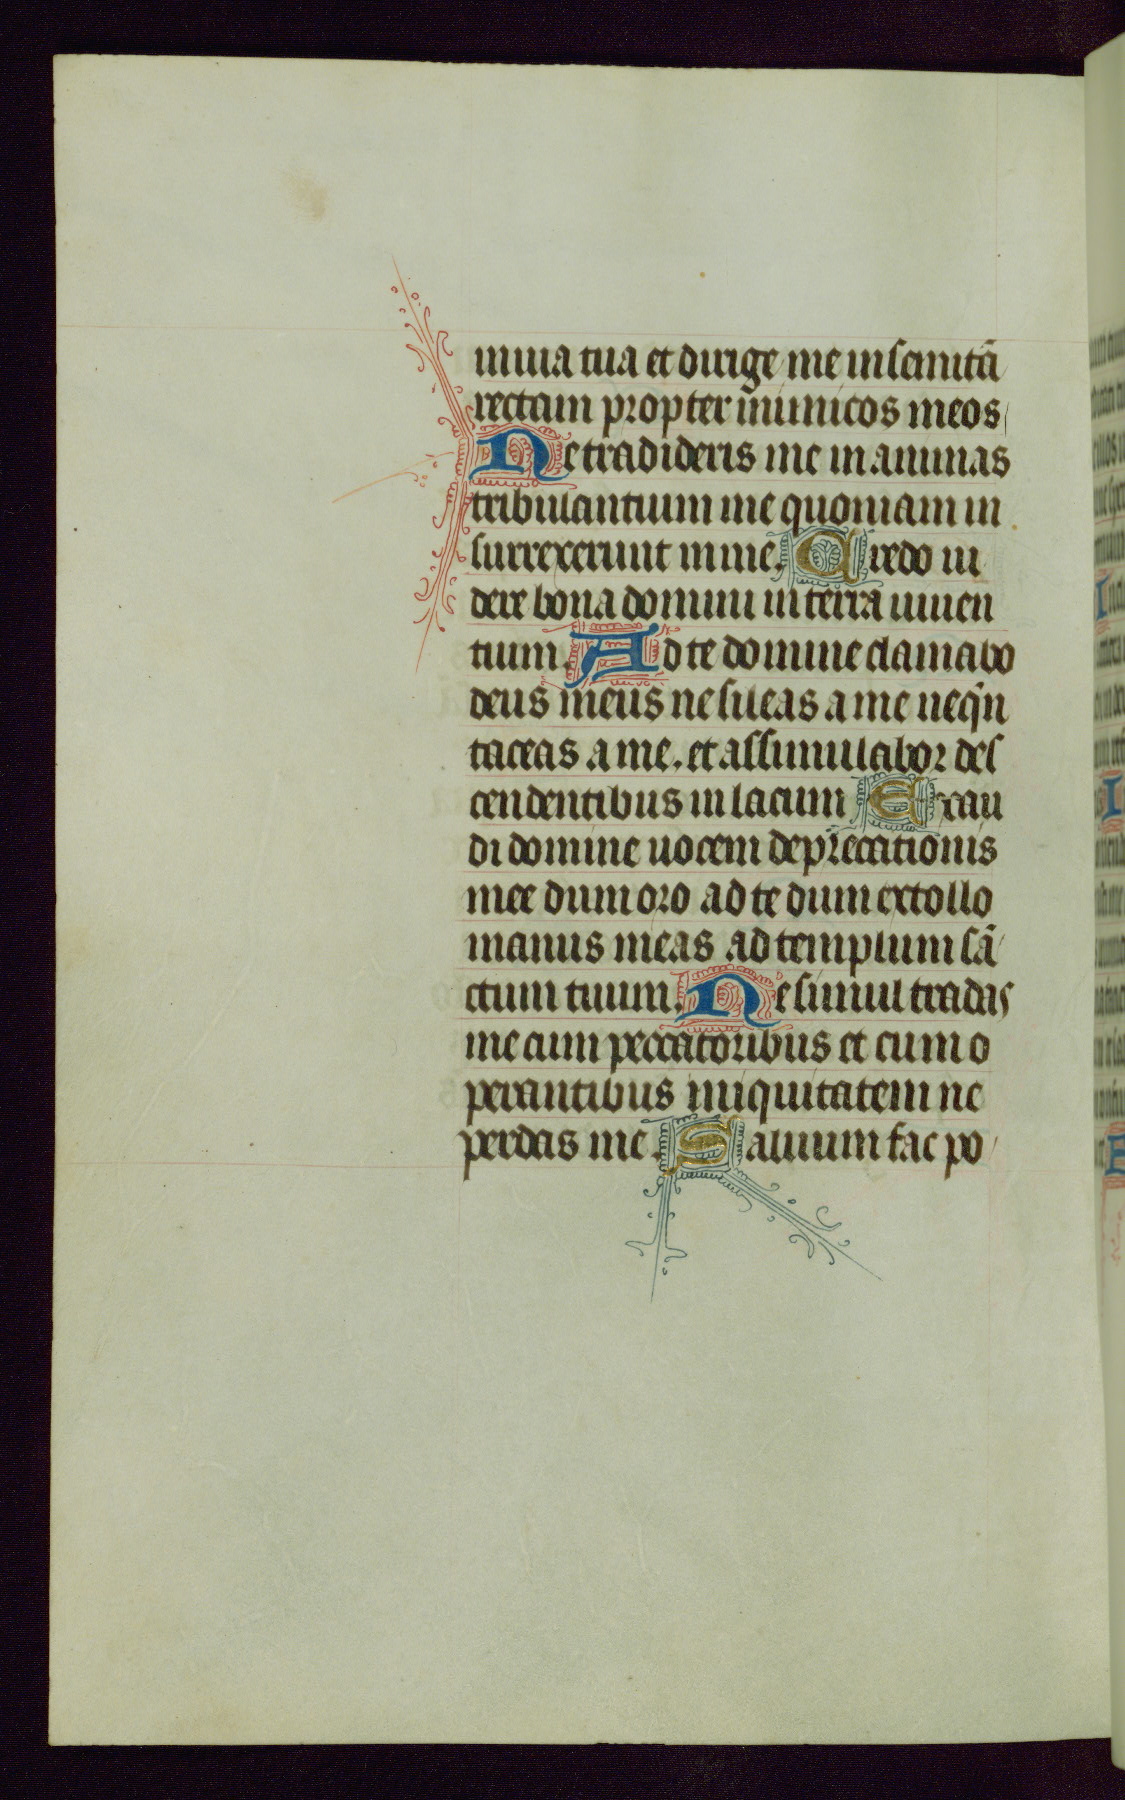 in uia tua et dirige me in semitā
rectam propter inimicos meos
Ne tradideris me in animas
tribulantium me quoniam in
surrexerunt in me. Credo ui
dere bona domini in terra uiuen
tium. Ad te domine clamabo
deus meus ne sileas a me neqn̄
taceas a me. et assimilabor des
cendentibus in lacum Exau
di domine uocem deprecationis
mee dum oro ad te dum extollo
manus meas ad templum sā
ctum tuum. Ne simul tradas
me cum peccatoribus et cum o
perantibus iniquitatem ne
perdas me. Saluum fac po